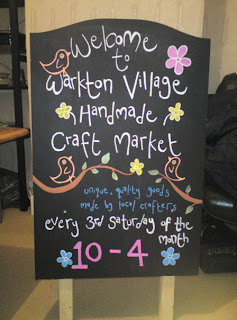 Welcome
to
Warkton Village
Handmade
Craft Market
unique, quality goods
made by local crafters
every 3rd Saturday of the
month
10-4